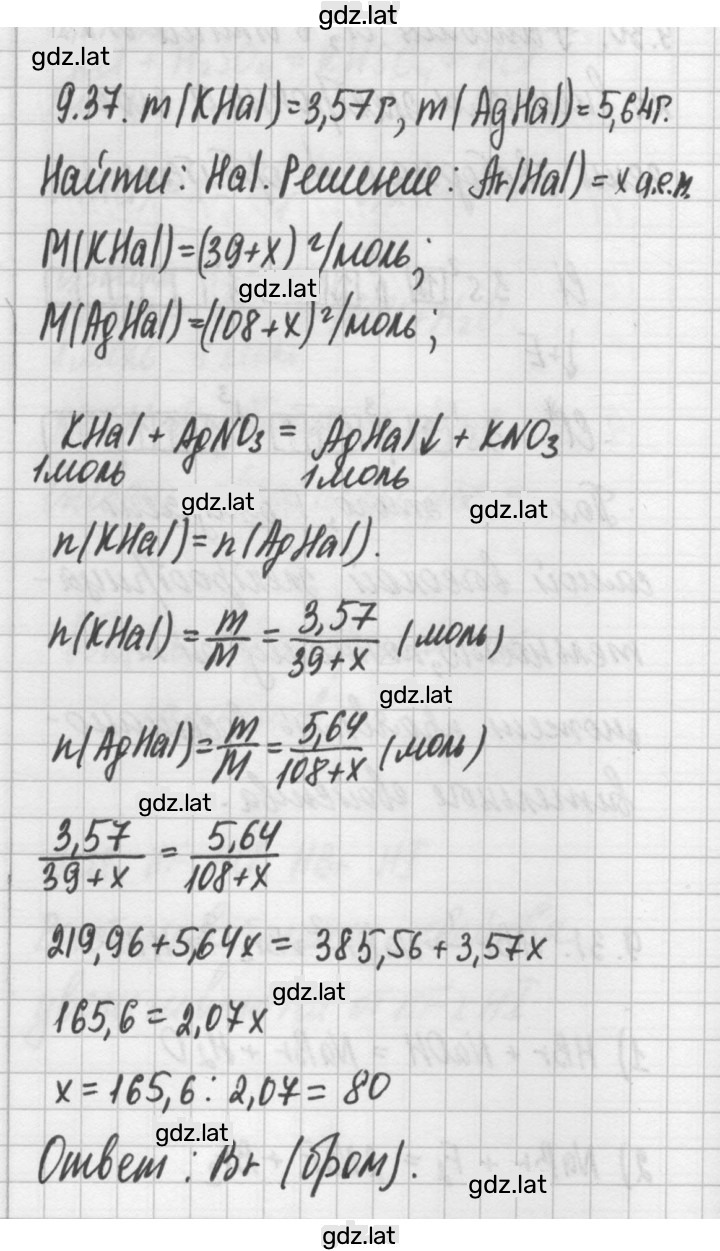 gdz.lat
gdz.lat
9.37. m(KHal)=3,57г, m(AgHal)=5,64г.
Найти: Hal. Решение: Ar(Hal)=x а.е.м.
M(KHal)=(39+x) г/моль;
gdz.lat
M(AgHal)=(108+x) г/моль;
KHal + AgNO3 = AgHal↓ + KNO3
1моль 1моль
gdz.lat gdz.lat
n(KHal)=n(AgHal).
n(KHal)=m/M=3,57/39+x (моль)
gdz.lat
n(AgHal)=m/M=5,64/108+x (моль)
gdz.lat
3,57/39+x = 5,64/108+x
219,96+5,64x = 385,56+3,57x
gdz.lat
165,6=2,07x
x=165,6:2,07=80
gdz.lat
Ответ: Br (бром).
gdz.lat
gdz.lat